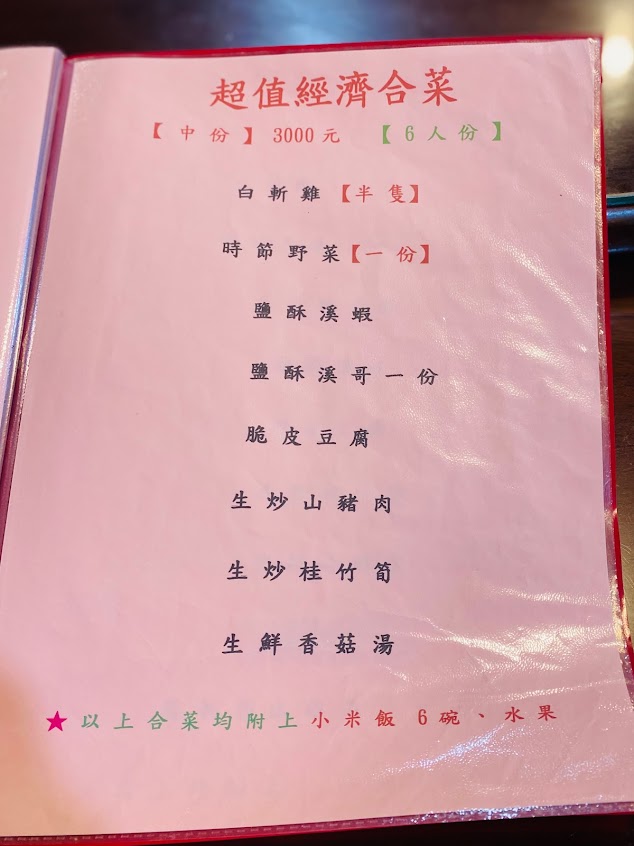 超值經濟合菜
【中份】 3000元 【6人份】
白斬雞【半隻】
時節野菜【一份】
鹽酥溪蝦
鹽酥溪哥一份
脆皮豆腐
生炒山豬肉
生炒桂竹筍
生鮮香菇湯
★以上合菜均附上小米飯 6碗、水果